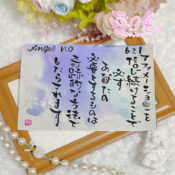 Angel no
621
アファメーションのことを
信じ続けることで
必ず
あなたの
必要とするものは
奇跡的な方法で
もたらされます